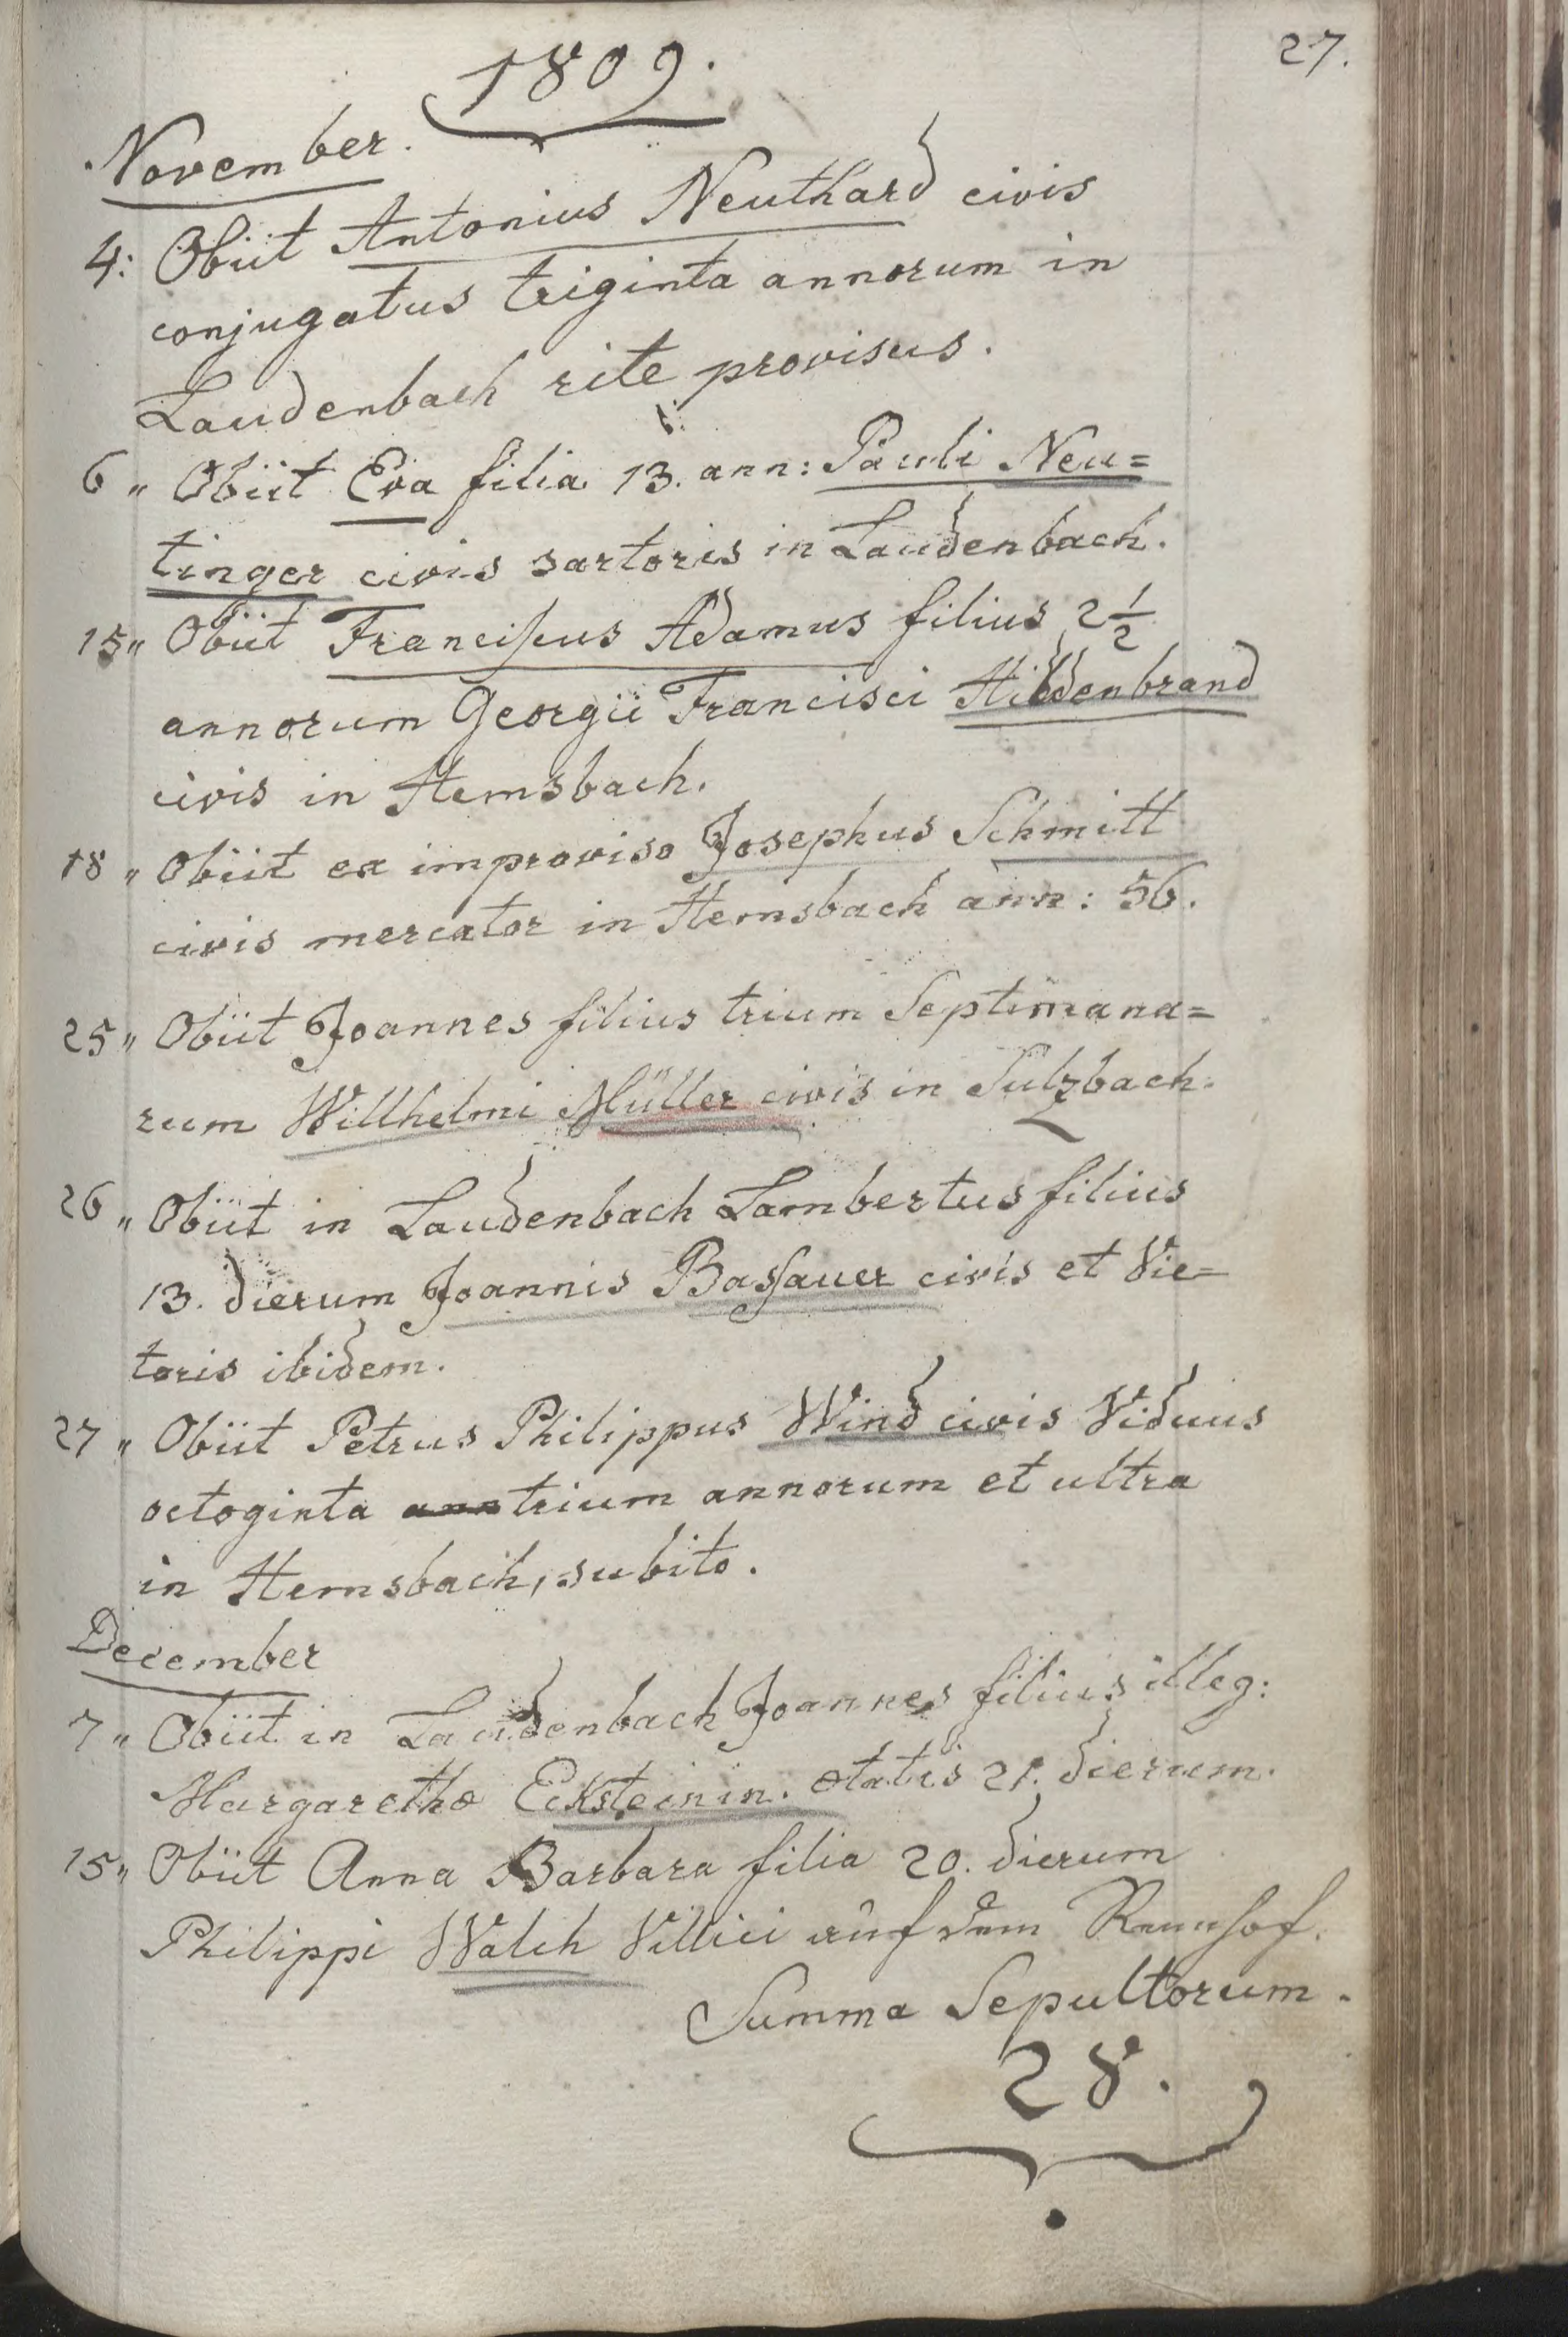 27.
1809.
November.
4: Obiit Antonius Neuthard civis
conjugatus triginta annorum in
Laudenbach rite provisus.
6 „ Obiit Eva filia 13. ann: Pauli Neu=
tinger civis sartoris in Laudenbach.
15„ Obiit Franciscus Adamus filius 2 1/2
annorum Georgii Francisci Hildenbrand
civis in Hemsbach.
18 „ Obiit ex improviso Josephus Schmitt
civis mercator in Hemsbach ann: 56.
25„ Obiit Joannes filius trium Septimana=
rum Willhelmi Müller civis in Sulzbach.
26 „ Obiit in Laudenbach Lambertus filius
13. dierum Joannis Bassauer civis et Vie=
toris ibidem.
27 „ Obiit Petrus Philippus Wind civis Viduus
octoginta ann trium annorum et ultra
in Hemsbach, subito.
December
7 „ Obiit in Laudenbach Joannes filius illeg:
Margarethæ Ecksteinin. ætatis 21. dierum.
15„ Obiit Anna Barbara filia 20. dierum
Philippi Walch Villici auf dem Rennhof.
Summa Sepultorum.
28.